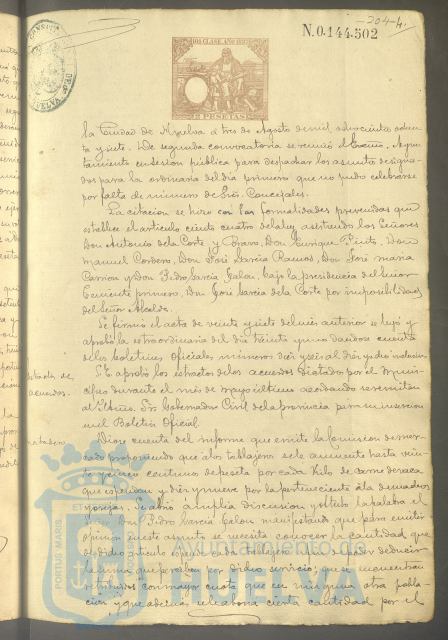 -204-4.
N.0.144.502
10ª CLASE. AÑO
2 PESETAS
HUELVA
la Ciudad de Huelva a tres de Agosto de mil ochocientos ochenta
y siete. De segunda convocatoria se reunió el Excmo. Ayun
tamiento en sesion pública para despachar los asuntos designa
dos para la ordinaria del dia primero que no pudo celebrarse
por falta de número de Sres. Concejales.
La citacion se hizo con las formalidades prevenidas que
establece el articulo ciento cuatro de la ley, asistiendo los Señores
Don Antonio de la Corte y Don Enrique Don
Manuel Cordero, Don José Garcia Ramos, Don José Maria
Carrion y Don Pedro Garcia bajo la presidencia del Señor
Teniente primero, Don José Garcia de la Corte por imposibilidad
del Señor Alcalde.
Se firmó el acta de veinte y siete del mes anterior se leyó y
aprobó la extraordinaria del dia treinta y uno dandose cuenta
de los boletines oficiales, números diez y seis al diez y ocho inclusive.
acuerdos.
Se aprobó los extractos de los acuerdos dictados por el Muni
cipio durante el mes de Mayo último acordando se remitan
al Iltmo. Sr. Gobernador Civil de la provincia para su insercion
en el Boletin Oficial.
Diose cuenta del informe que emite la Comision de mer
cado proponiendo que a los tablajeros se le aumente hasta vein
te y cinco centimos de peseta por cada Kilo de carne de vaca
que espendan y diez y nueve por la perteneciente á la de machos
y ovejas. Se abrió amplia discusion y
Don Pedro Garcia manifestando que para emitir
opinion en este asunto se necesita conocer la cantidad que
de dicho articulo espende cada tablajero para poder deducir
la suma que perciben por dicho servicio; que se encuentran
retribuidos con mayor cuota que en ninguna otra pobla
cion y que además se les abona cierta cantidad por el
PORTUS MARIS ET
Ayuntamiento de
HUELVA